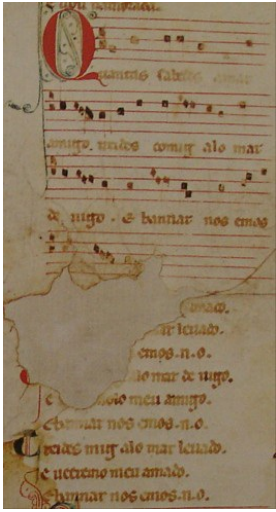 Quantas sabedes amar
amigo. treides comig alo mar
de uigo. E bannar nos emos
amado.
leuado.
emos.n.o.
alo mar de uigo.
e meu amigo.
E bannar nos emos.n.o.
Treides mig alo mar leuado.
e ueeremo meu amado.
E bannar nos emos.n.o.